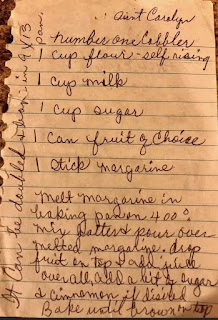 Aunt Carolyn
number one Cobbler
1 cup flour - self rising
1 cup milk
1 cup sugar
1 Can fruit of Choice
1 stick margarine
melt margarine in
baking pan on 400°
mix batter & pour over
melted margarine. drop
fruit on top & add juice
over all, add a bit of sugar
& cinnamon if desired
Bake until brown on top
It Can be doubled & done in 9x13
pan